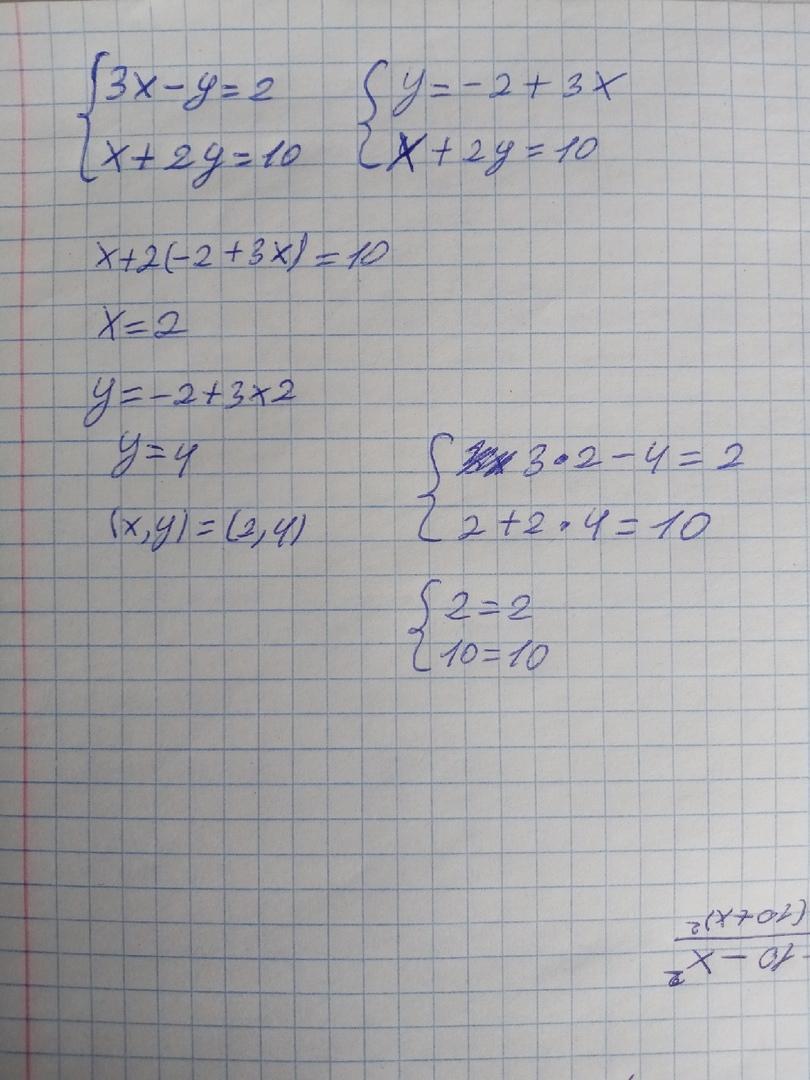 3x-y=2
x+2y=10
y=-2+3x
x+2y=10
x+2(-2+3x)=10
x=2
y=-2+3×2
y=4
(x,y)=(2,4)
3·2-4=2
2+2·4=10
2=2
10=10
-10-x²
(10+x)²